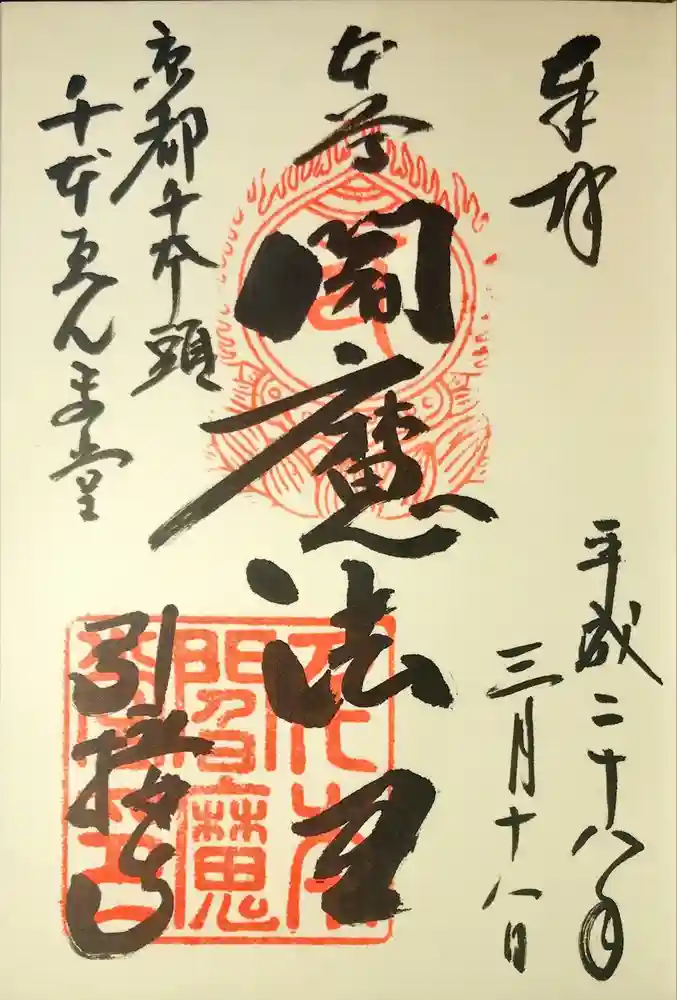 奉拝
平成二十八年
三月十八日
本尊
閻魔法王
京都千本頭
千本ゑんま堂
引接寺